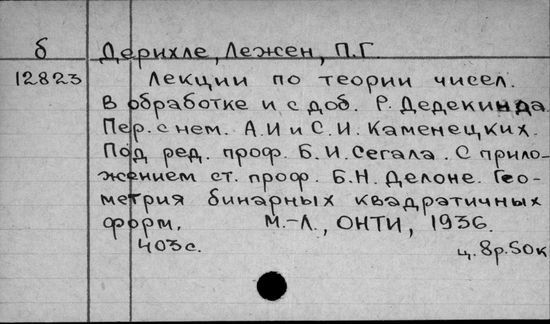 б Дерихле, Лежен, П.Г.
12823 Лекции по теории чисел.
В обработке и с доб. Р. Дедекинда.
Пер. с нем. А.И и С.И. Каменецких.
Под ред. проф. Б.И. Сегала. С прило-
жением ст. проф. Б.Н. Делоне. Гео-
метрия бинарных квадратичных
форм. М.-Л., ОНТИ, 1936.
403с. ц. 8р.50к